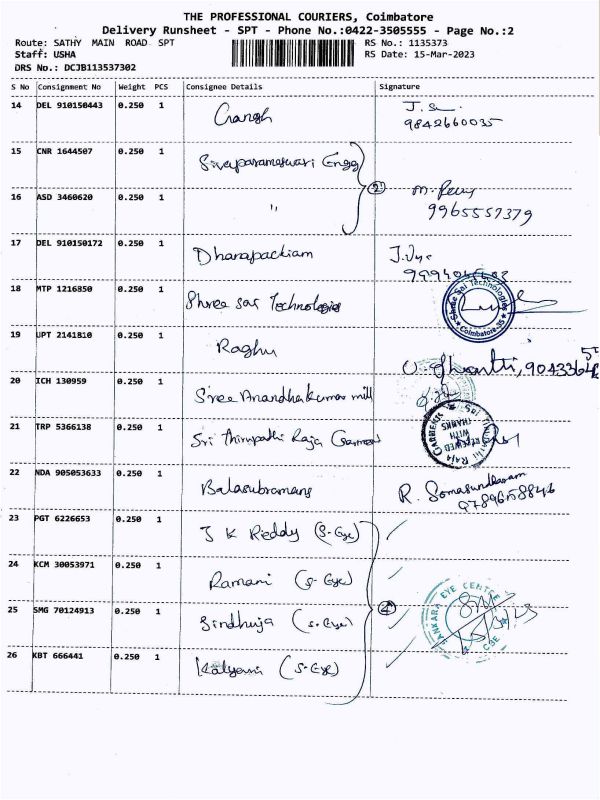 THE PROFESSIONAL COURIERS, Coimbatore
Delivery Runsheet - SPT - Phone No.:0422-3505555 - Page No.:2
Route: SATHY MAIN ROAD SPT RS No.: 1135373
Staff: USHA RS Date: 15-Mar-2023
DRS No.: DCJB113537302
S No Consignment No Weight PCS Consignee Details Signature
14 DEL 910150443 0.250 1 Gangh
9842660035
15 CNR 1644507 0.250 1 Sivaparameswari Engg
16 ASD 3460620 0.250 1 " 2
9965557379
17 DEL 910150172 0.250 1 Dhanapackiam
18 MTP 1216850 0.250 1 Shree Sai Technologies
Shree Sai Technologies Coimbatore-35
19 UPT 2141810 0.250 1 Raghu
20 ICH 130959 0.250 1 Sree Anandhakumar mill
21 TRP 5366138 0.250 1 Sri Thirupathi Raja Garments
RECEIVED WITH THANKS
22 NDA 905053633 0.250 1 Balasubramans R. Somasundaram
9789658846
23 PGT 6226653 0.250 1 J K Reddy (S-Eye)
24 KCM 30053971 0.250 1 Ramani (S-Eye)
25 SMG 70124913 0.250 1 Sindhuja (S-Eye) 4
SANKARA EYE CENTRE CBE
26 KBT 666441 0.250 1 Kalyani (S-Eye)